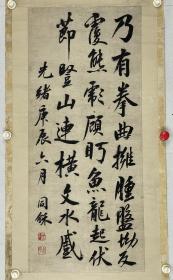 乃有拳曲擁腫盤坳反
覆熊彪顧盼魚龍起伏
節豎山連橫文水蹙
光緒庚辰六月 同龢